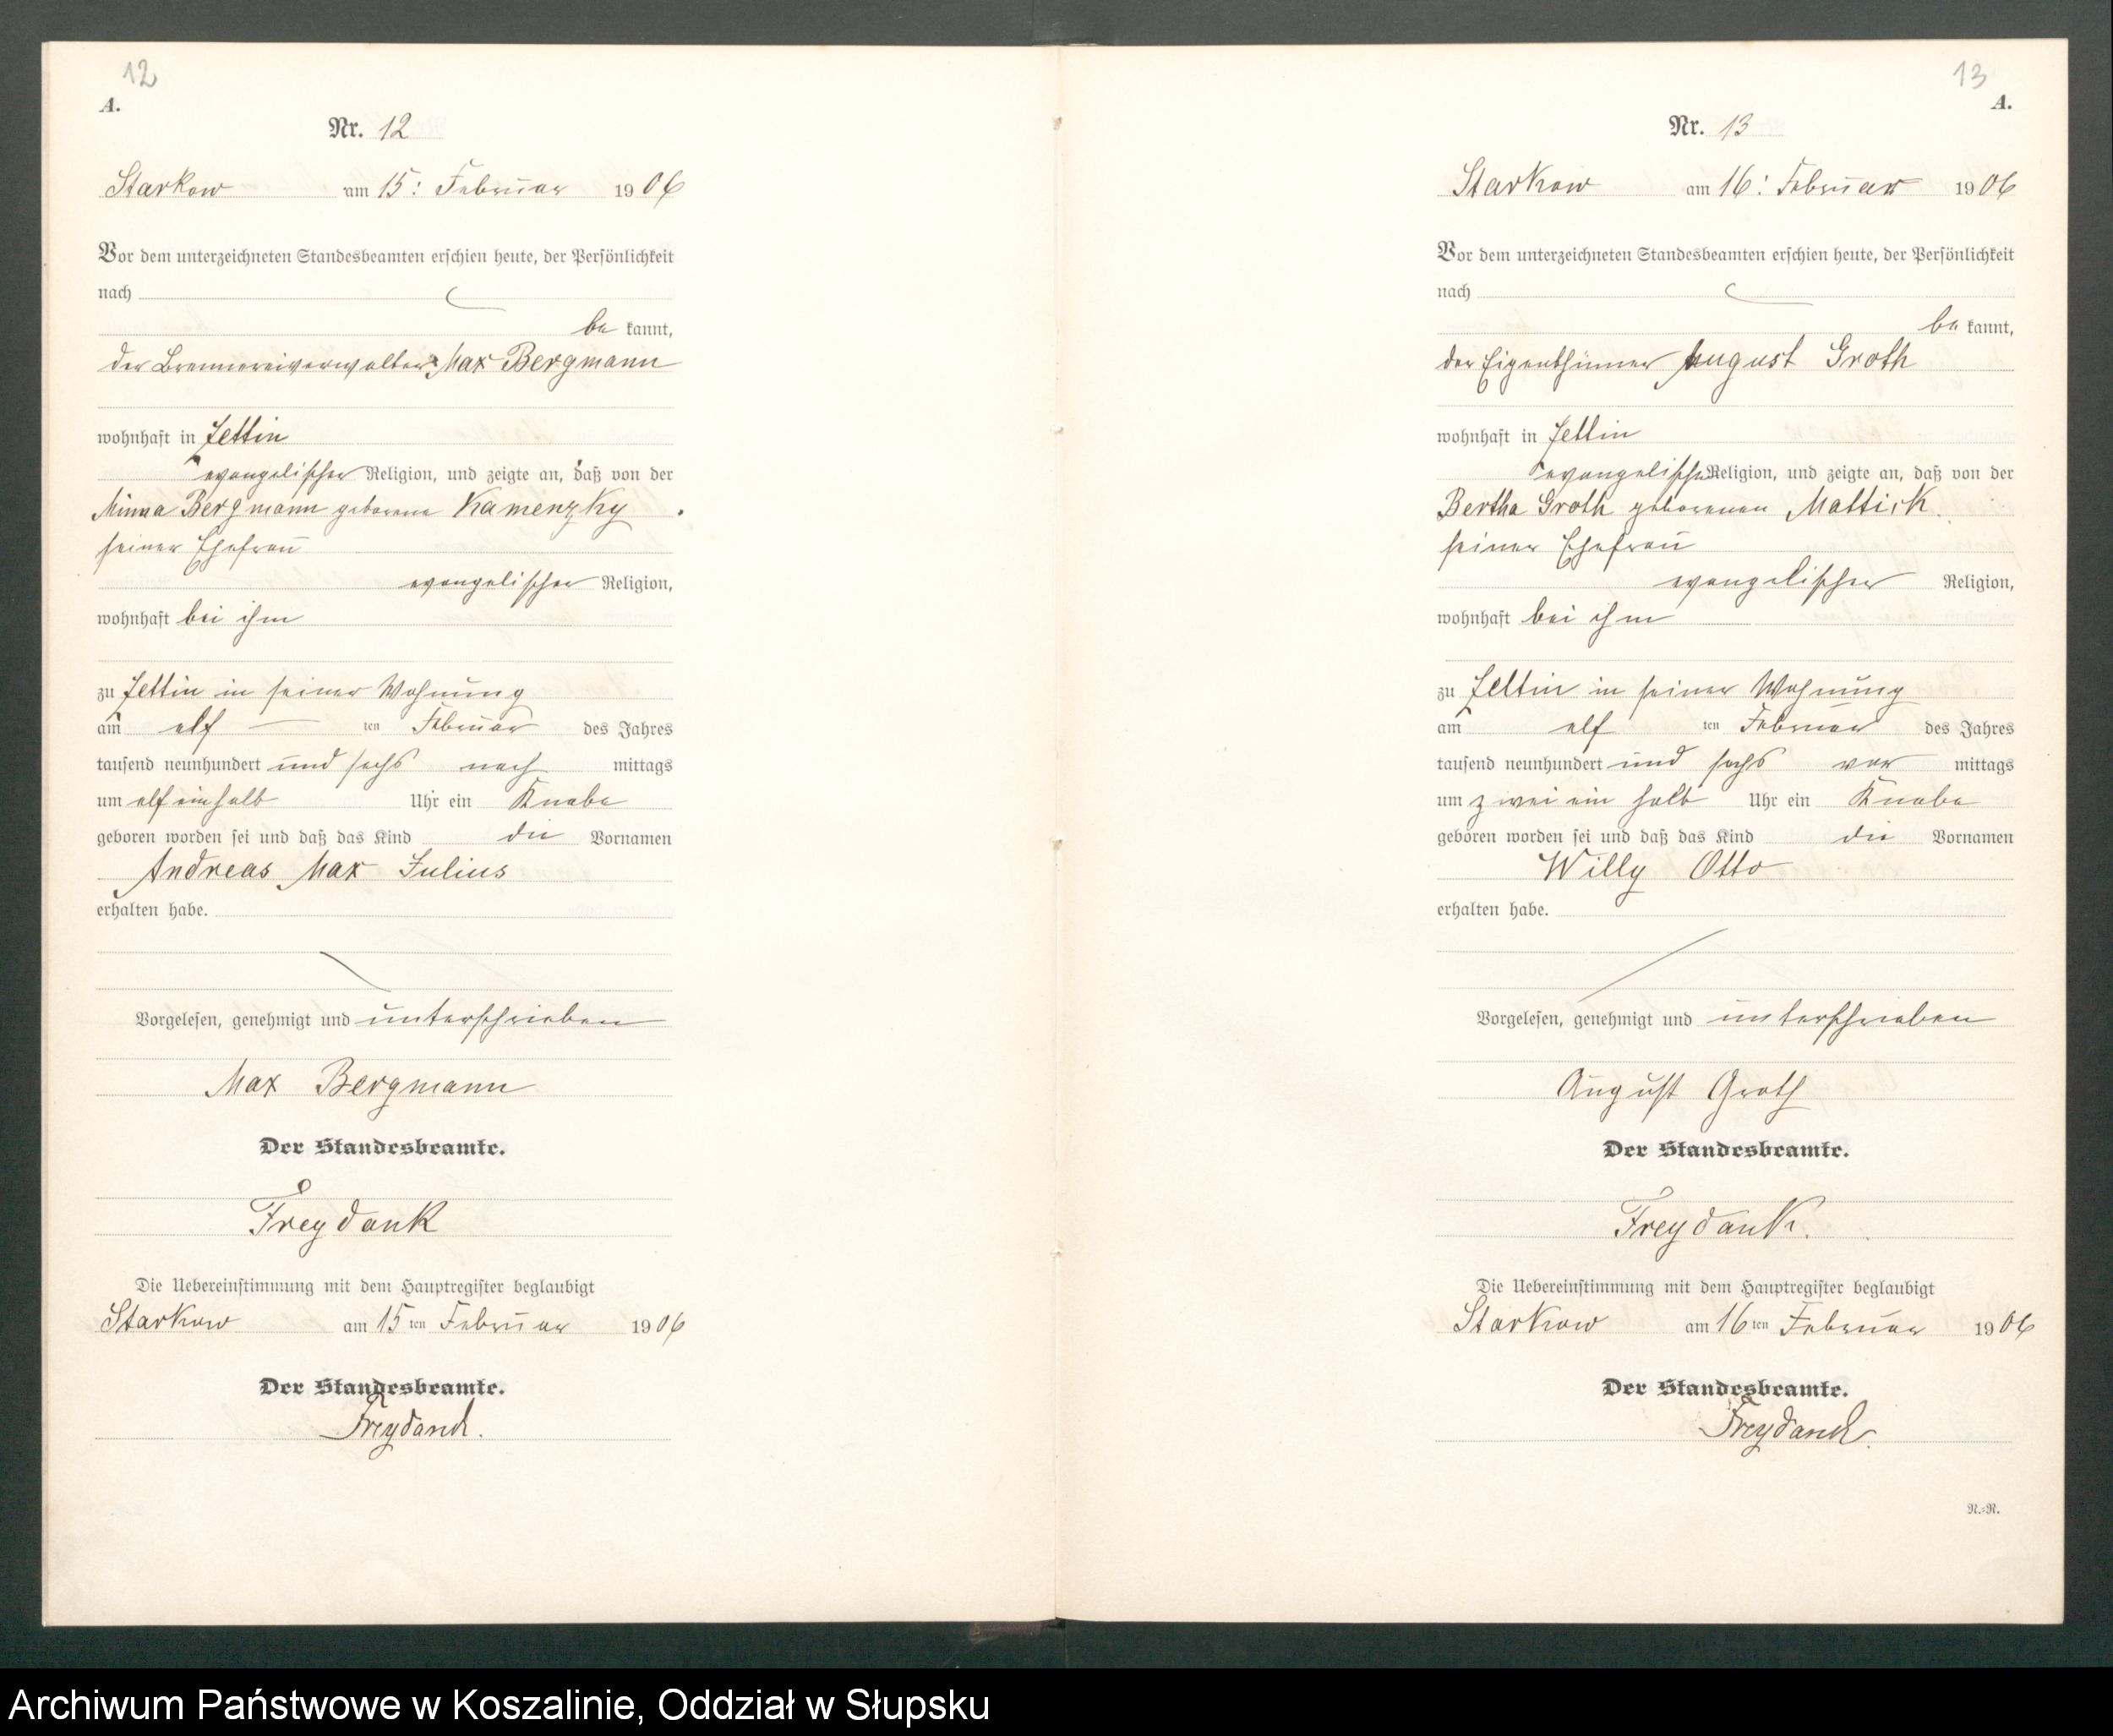 12
A.
Nr. 12
Starkow am 15: Februar 1906
Vor dem unterzeichneten Standesbeamten erschien heute, der Persönlichkeit
nach
be kannt,
der Brennereiverwalter Max Bergmann
wohnhaft in Zettin
evangelischer Religion, und zeigte an, daß von der
Minna Bergmann geborene Kamenzky
seiner Ehefrau
evangelischer Religion,
wohnhaft bei ihm
zu Zettin in seiner Wohnung
am elf ten Februar des Jahres
tausend neunhundert und sechs nach mittags
um elf ein halb Uhr ein Knabe
geboren worden sei und daß das Kind die Vornamen
Andreas Max Julius
erhalten habe.
Vorgelesen, genehmigt und unterschrieben
Max Bergmann
Der Standesbeamte.
Freydank
Die Uebereinstimmung mit dem Hauptregister beglaubigt
Starkow am 15 ten Februar 1906
Der Standesbeamte.
Freydanck.
13
A.
Nr. 13
Starkow am 16: Februar 1906
Vor dem unterzeichneten Standesbeamten erschien heute, der Persönlichkeit
nach
be kannt,
der Eigenthümer August Groth
wohnhaft in Zettin
evangelischer Religion, und zeigte an, daß von der
Bertha Groth geborenen Mattick
seiner Ehefrau
evangelischer Religion,
wohnhaft bei ihm
zu Zettin in seiner Wohnung
am elf ten Februar des Jahres
tausend neunhundert und sechs vor mittags
um zwei ein halb Uhr ein Knabe
geboren worden sei und daß das Kind die Vornamen
Willy Otto
erhalten habe.
Vorgelesen, genehmigt und unterschrieben
August Groth
Der Standesbeamte.
Freydank.
Die Uebereinstimmung mit dem Hauptregister beglaubigt
Starkow am 16 ten Februar 1906
Der Standesbeamte.
Freydanck.
N.=R.
Archiwum Państwowe w Koszalinie, Oddział w Słupsku